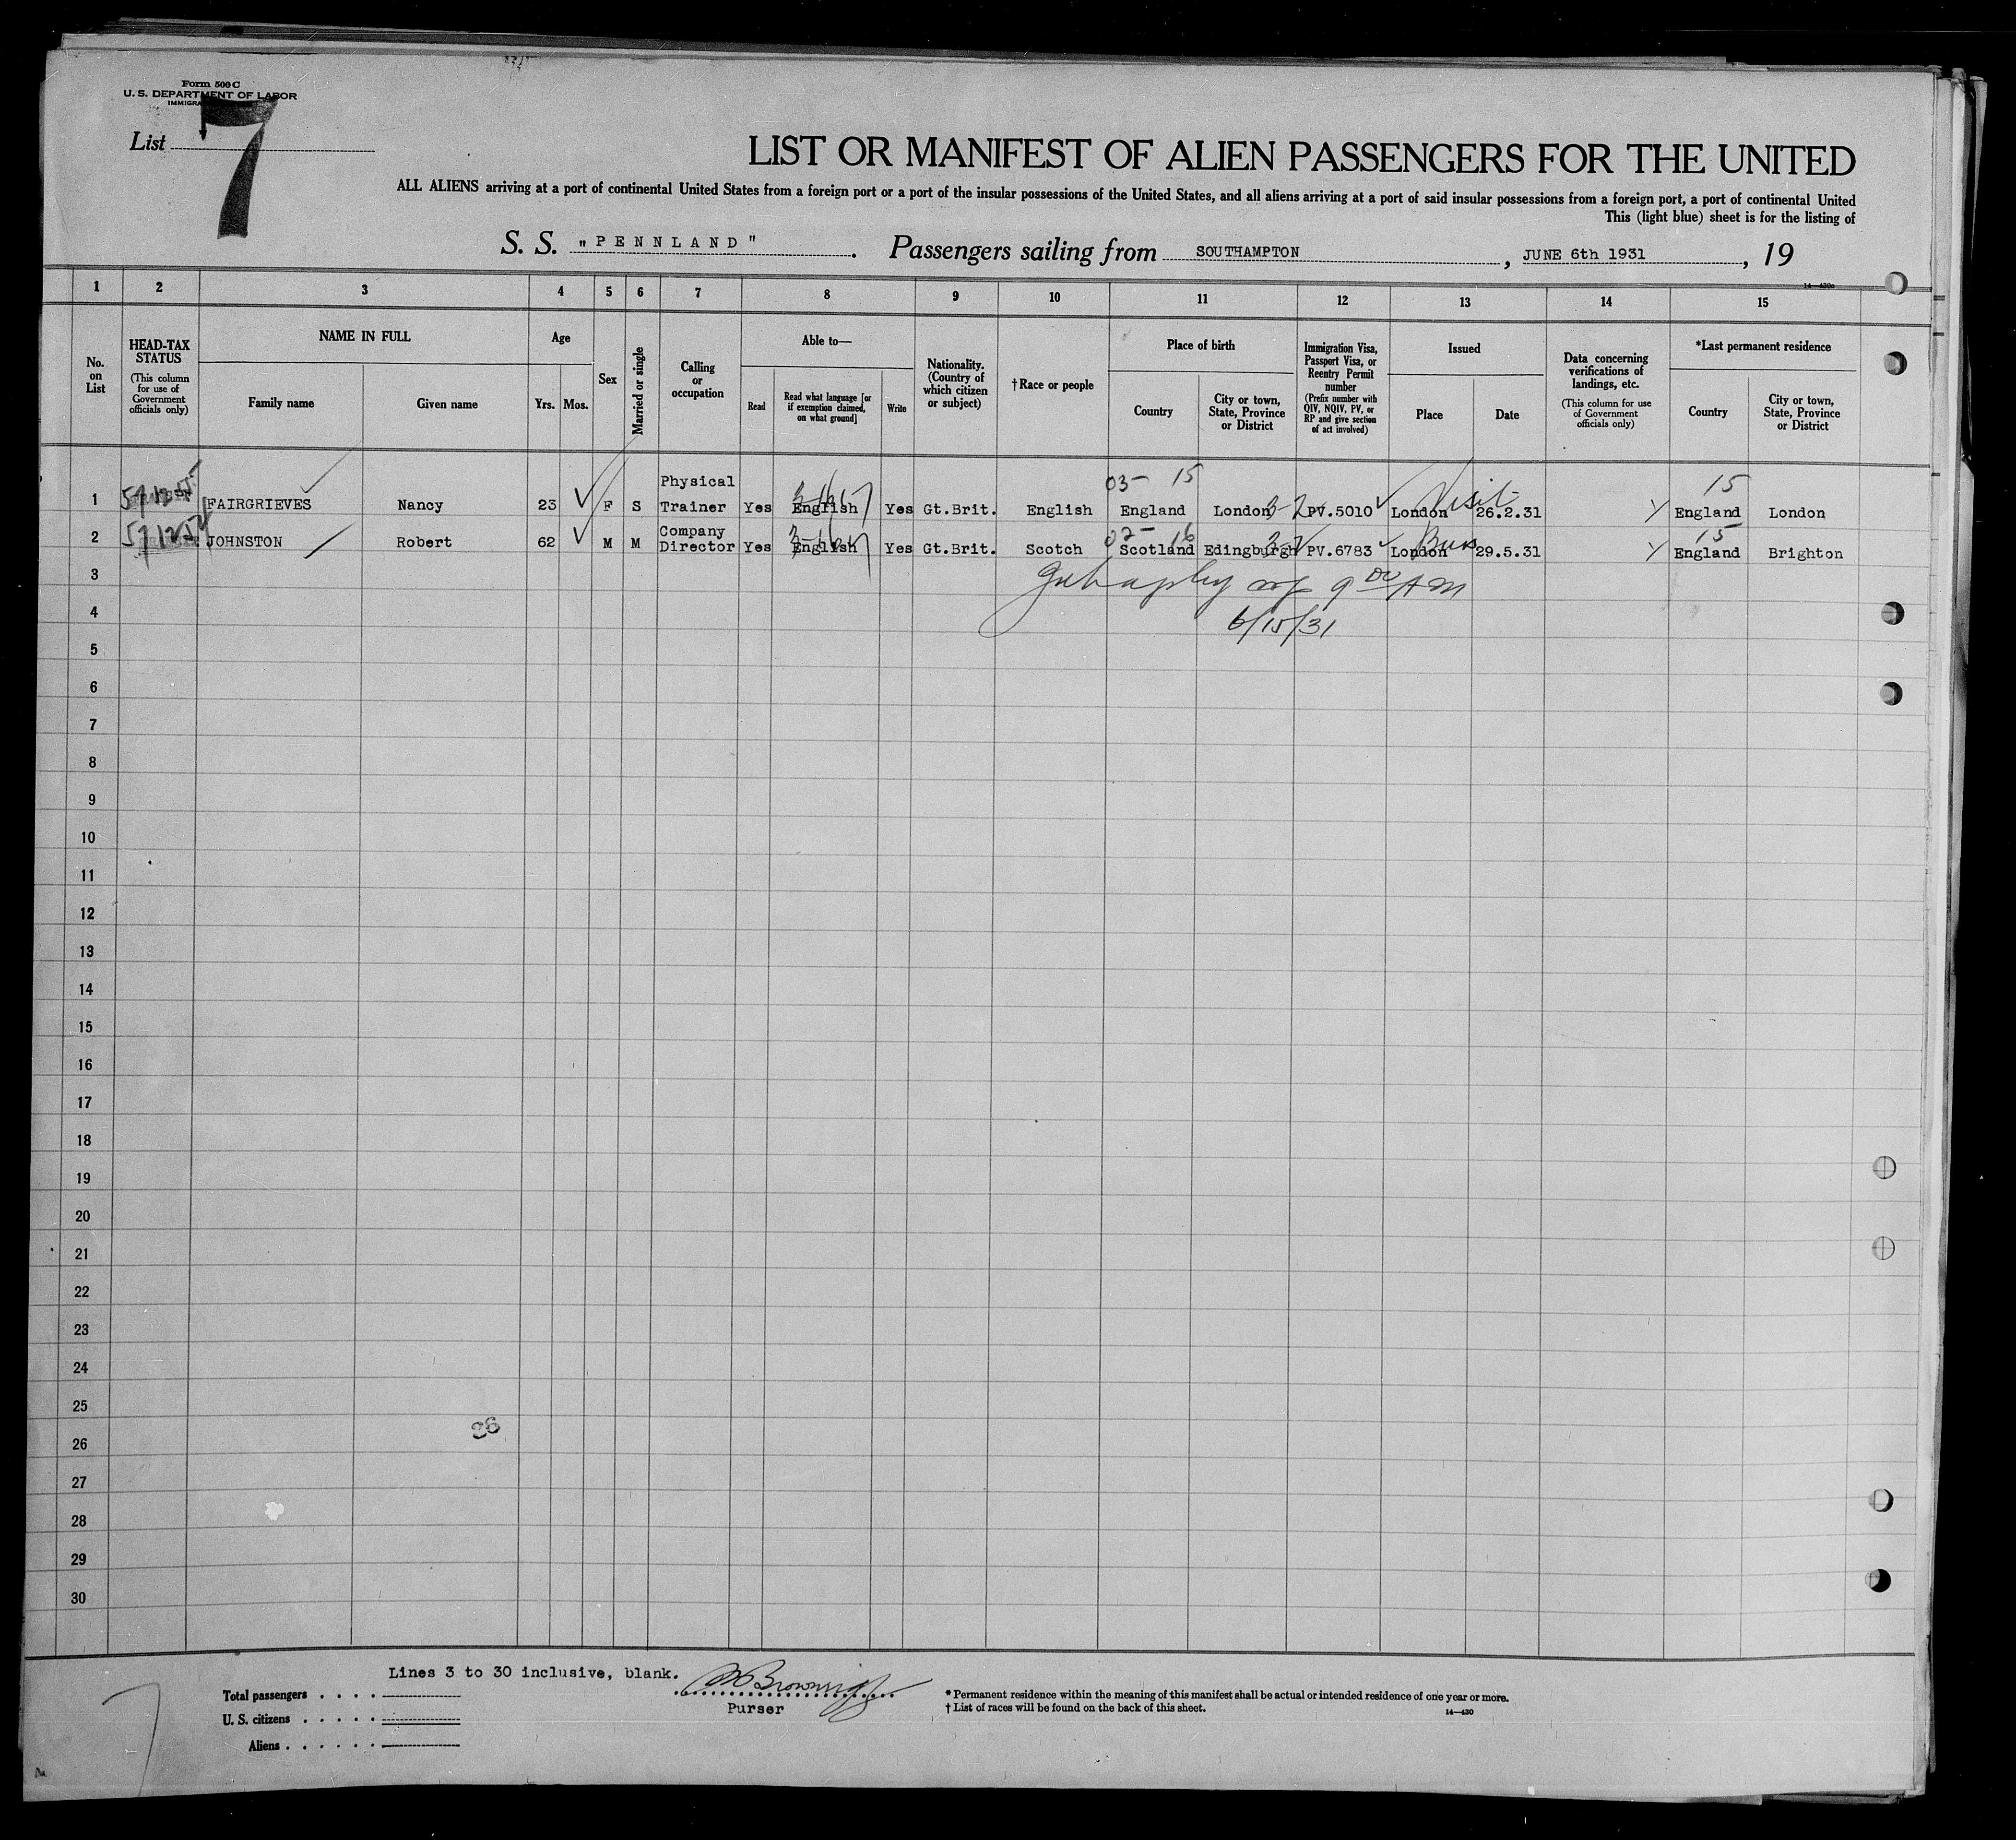 Form 500 C
U. S. DEPARTMENT OF LABOR
List 7
LIST OR MANIFEST OF ALIEN PASSENGERS FOR THE UNITED
ALL ALIENS arriving at a port of continental United States from a foreign port or a port of the insular possessions of the United States, and all aliens arriving at a port of said insular possessions from a foreign port, a port of continental United
This (light blue) sheet is for the listing of
S. S. "PENNLAND". Passengers sailing from SOUTHAMPTON, JUNE 6th 1931, 19
14—430c
1 2 3 4 5 6 7 8 9 10 11 12 13 14 15
No. on List
HEAD-TAX STATUS (This column for use of Government officials only)
NAME IN FULL
Family name
Given name
Age
Yrs. Mos.
Sex
Married or single
Calling or occupation
Able to—
Read
Read what language [or if exemption claimed, on what ground]
Write
Nationality. (Country of which citizen or subject)
† Race or people
Place of birth
Country
City or town, State, Province or District
Immigration Visa, Passport Visa, or Reentry Permit number (Prefix number with QIV, NQIV, PV, or RP and give section of act involved)
Issued
Place
Date
Data concerning verifications of landings, etc. (This column for use of Government officials only)
*Last permanent residence
Country
City or town, State, Province or District
03- 15 15
1 FAIRGRIEVES Nancy 23 F S Physical Trainer Yes English Yes Gt.Brit. English England London PV.5010 London Visit 26.2.31 England London
02- 16 15
2 JOHNSTON Robert 62 M M Company Director Yes English Yes Gt.Brit. Scotch Scotland Edingburgh PV.6783 London Bus 29.5.31 England Brighton
3
9 00 AM
4
6/15/31
5
6
7
8
9
10
11
12
13
14
15
16
17
18
19
20
21
22
23
24
25
26
27
28
29
30
Lines 3 to 30 inclusive, blank.
Purser
Total passengers . . . .
U. S. citizens . . . . .
Aliens . . . . . .
* Permanent residence within the meaning of this manifest shall be actual or intended residence of one year or more.
† List of races will be found on the back of this sheet.
14—430
7